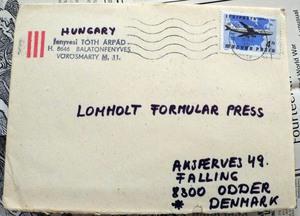 HUNGARY
fenyvesi TÓTH ÁRPÁD
H. 8646 BALATONFENYVES
VÖRÖSMARTY M. 31.
MAGYAR POSTA
LOMHOLT FORMULAR PRESS
AKSJÆRVEJ 49.
FALLING
8300 ODDER
* DENMARK
World War